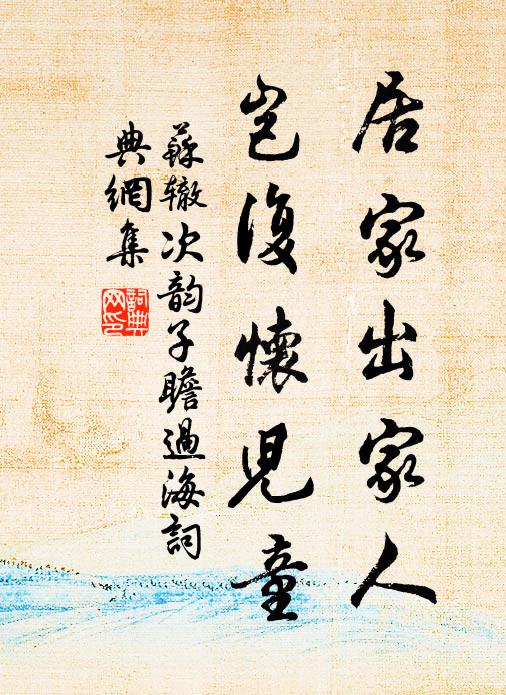 居家出家人
豈復懷兒童
蘇辙次韵子瞻過海詞
典網集
詞典
网印